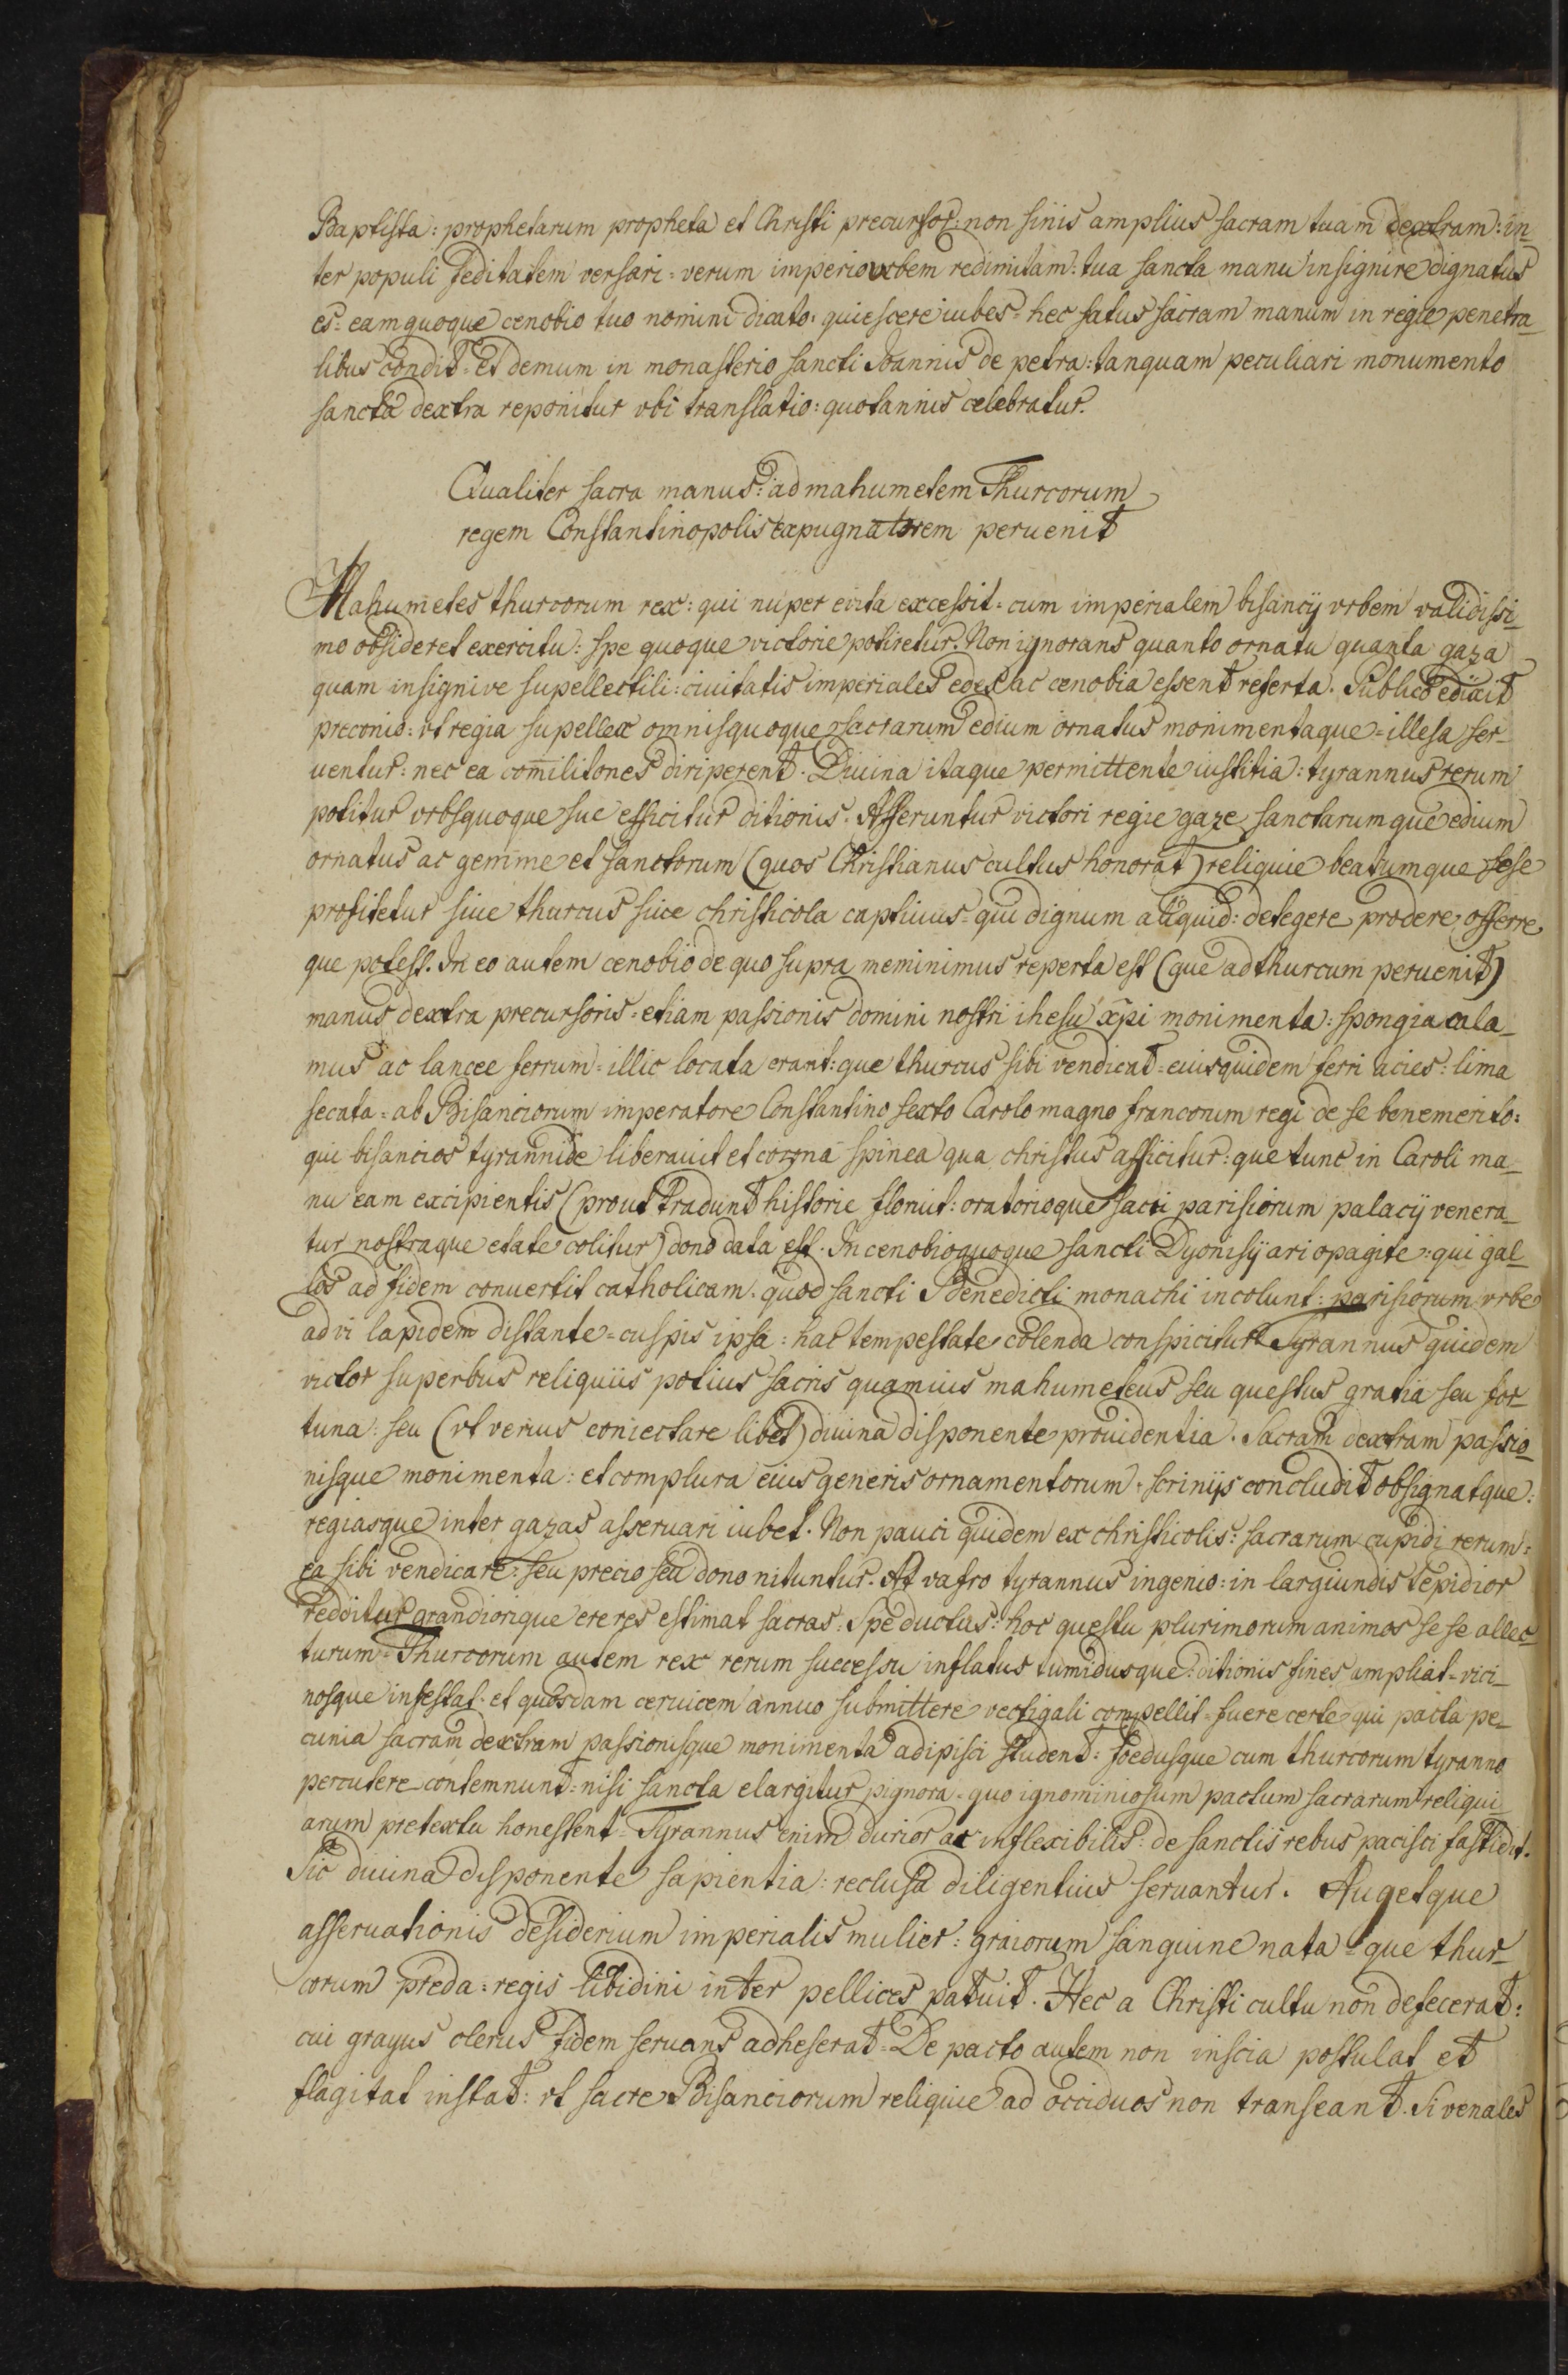 Baptista: prophetarum propheta et Christi precursor: non sinis amplius sacram tuam dextram: in-
ter populi feditatem versari: verum imperio urbem redimitam: tua sancta manu insignire dignatus
es: eam quoque cenobio tuo nomini dicato: quiescere iubes: hec fatus sacram manum in regie penetra-
libus condit: et demum in monasterio sancti Joannis de petra: tanquam peculiari monumento
sancta dextra reponitur vbi translatio: quotannis celebratur.
Qualiter sacra manus: ad mahumetem Thurcorum
regem Constantinopolis expugnatorem peruenit
Mahumetes thurcorum rex: qui nuper evita excessit: cum imperialem bisancij vrbem validissi-
mo obsideret exercitu: spe quoque victorie potiretur. Non ignorans quanto ornatu quanta gaza
quam insignive supellectili: ciuitatis imperiales edes ac cenobia essent referta. Publico edixit
preconio: vt regia supellex omnisquoque sacrarum edium ornatus monimentaque: illesa ser-
uentur: nec ea com̄ilitones diriperent. Diuina itaque permittente iustitia: tyrannus rerum
potitur vrbsquoque sue efficitur ditionis. Afferuntur victori regie gaze sanctarumque edium
ornatus ac gemme et sanctorum (quos Christianus cultus honorat) reliquie beatumque sese
profitetur siue thurcus siue christicola captiuus: qui dignum aliquid: detegere prodere offerre
que potest. In eo autem cenobio de quo supra meminimus reperta est (que ad thurcum peruenit)
manus dextra precursoris: etiam passionis domini nostri ihesu xp̄i monimenta: spongia cala-
mus ac lancee ferrum: illic locata erant: que thurcus sibi vendicat: eiusquidem ferri acies: lima
secata: ab Bisanciorum imperatore Constantino sexto Carolo magno francorum regi de se benemerito:
qui bisancios tyrannide liberauit et corona spinea qua christus afficitur: que tunc in Caroli ma-
nu eam excipientis (prout tradunt historie floruit: oratorioque sacri parisiorum palacij venera-
tur nostraque etate colitur) dono data est. In cenobioquoque sancti Dyonisij ariopagite: qui gal-
los ad fidem conuertit catholicam. quod sancti Benedicti monachi incolunt: parisiorum vrbe
ad vi lapidem distante: cuspis ipsa: hac tempestate colenda conspicitur: Tyrannus quidem
victor superbus reliquiis potius sacris quamuis mahumeteus seu questus gratia seu for-
tuna: seu (vt verius coniectare libet) diuina disponente prouidentia. Sacram dextram passio-
nisque monimenta: et complura eius generis ornamentorum: scrinijs concludit obsignatque:
regiasque inter gazas asseruari iubet. Non pauci quidem ex christicolis: sacrarum cupidi rerum:
ea sibi vendicare: seu precio seu dono nituntur. At vafro tyrannus ingenio: in largiundis tepidior
redditur grandiorique ere res estimat sacras: Spe ductus: hoc questu plurimorum animos se se allec-
turum: Thurcorum autem rex rerum successu inflatus tumidusque: ditionis fines ampliat: vici-
nosque infestat: et quosdam ceruicem annuo submittere vectigali compellit: fuere certe qui pacta pe-
cunia sacram dextram passionisque monimenta adipisci student: foedusque cum thurcorum tyranno
percutere contemnunt: nisi sancta elargitur pignora: quo ignominiosum pactum sacrarum reliqui-
arum pretextu honestent: Tyrannus enim durior ac inflexibilis: de sanctis rebus pacisci fastidit.
Sic diuina disponente sapientia: reclusa diligentius seruantur. Augetque
asseruationis desiderium imperialis mulier: graiorum sanguine nata: que thur-
corum preda: regis libidini inter pellices patuit. Hec a Christi cultu non defecerat:
cui grayus clerus fidem seruans adheserat: De pacto autem non inscia postulat et
flagitat instat: vt sacre Bisanciorum reliquie ad occiduos non transeant. Si venales